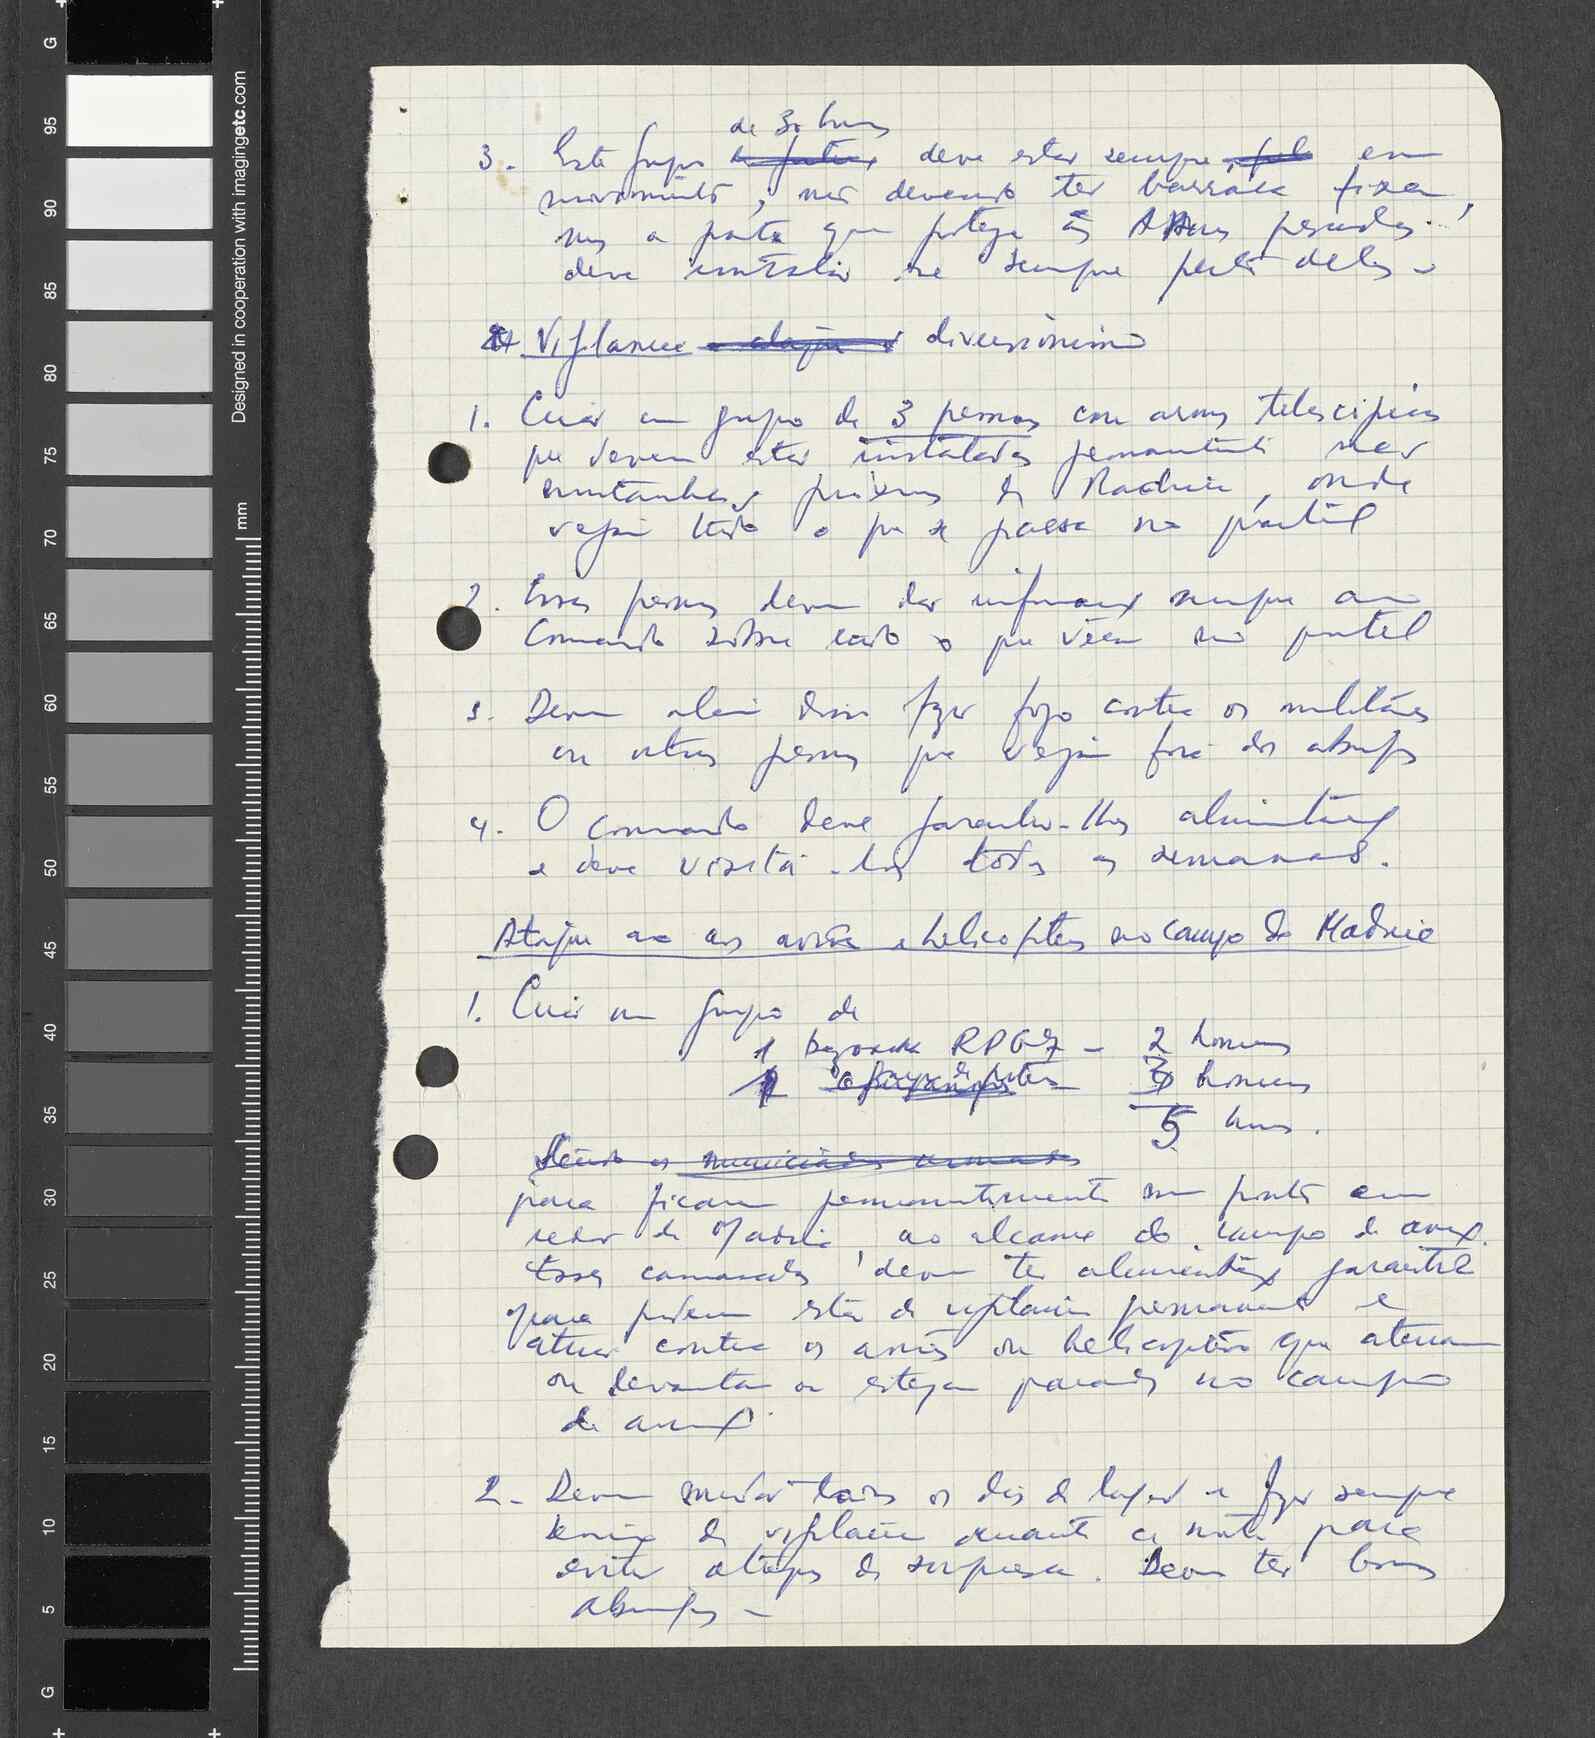 de 30 homens
3. Este grupo deve estar sempre em
movimento, não devendo ter barraca fixa,
mas a parte que protege as Armas pesadas
deve instalar-se sempre perto delas -
Vigilancia diversionismo
1. Criar um grupo de 3 pessoas com armas telescópicas
que devem estar instalados permanente nas
montanhas próximas de Madina, onde
vejam tudo o que se passa no quartel
2. Essas pessoas devem dar informações sempre ao
Comando sobre tudo o que vêem no quartel
3. Devem alem disso fazer fogo contra os militares
ou outras pessoas que vejam fora dos abrigos
4. O comando deve garantir-lhes alimentação
e deve visitá-los todas as semanas.
Ataque aos aviões e helicopteros no campo de Madina
1. Criar um grupo de
1 bazooka RPG7 - 2 homens
3 homens
5 homens.
para ficarem permanentemente num ponto em
redor de Madina, ao alcance do campo de aviação.
Esses camaradas devem ter alimentação garantida
para poderem estar de vigilancia permanente e
atuar contra os aviões ou helicopteros que aterram
ou levantam ou estejam parados no campo
de aviação.
2. Devem mudar todos os dias de lugar e fazer sempre
serviço de vigilancia durante a noite para
evitar ataques de surpresa. Devem ter bons
abrigos -
G
95
90
85
80
75
70
65
60
55
50
45
40
35
30
25
20
15
10
5
G
Designed in cooperation with imagingetc.com
mm